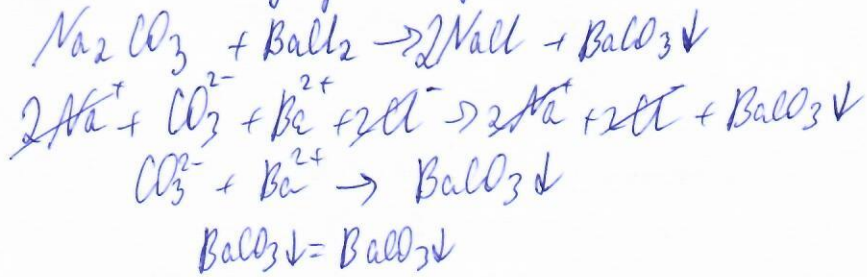 Na₂CO₃ + BaCl₂ → 2NaCl + BaCO₃↓
2Na⁺ + CO₃²⁻ + Ba²⁺ + 2Cl⁻ → 2Na⁺ + 2Cl⁻ + BaCO₃↓
CO₃²⁻ + Ba²⁺ → BaCO₃↓
BaCO₃↓ = BaCO₃↓